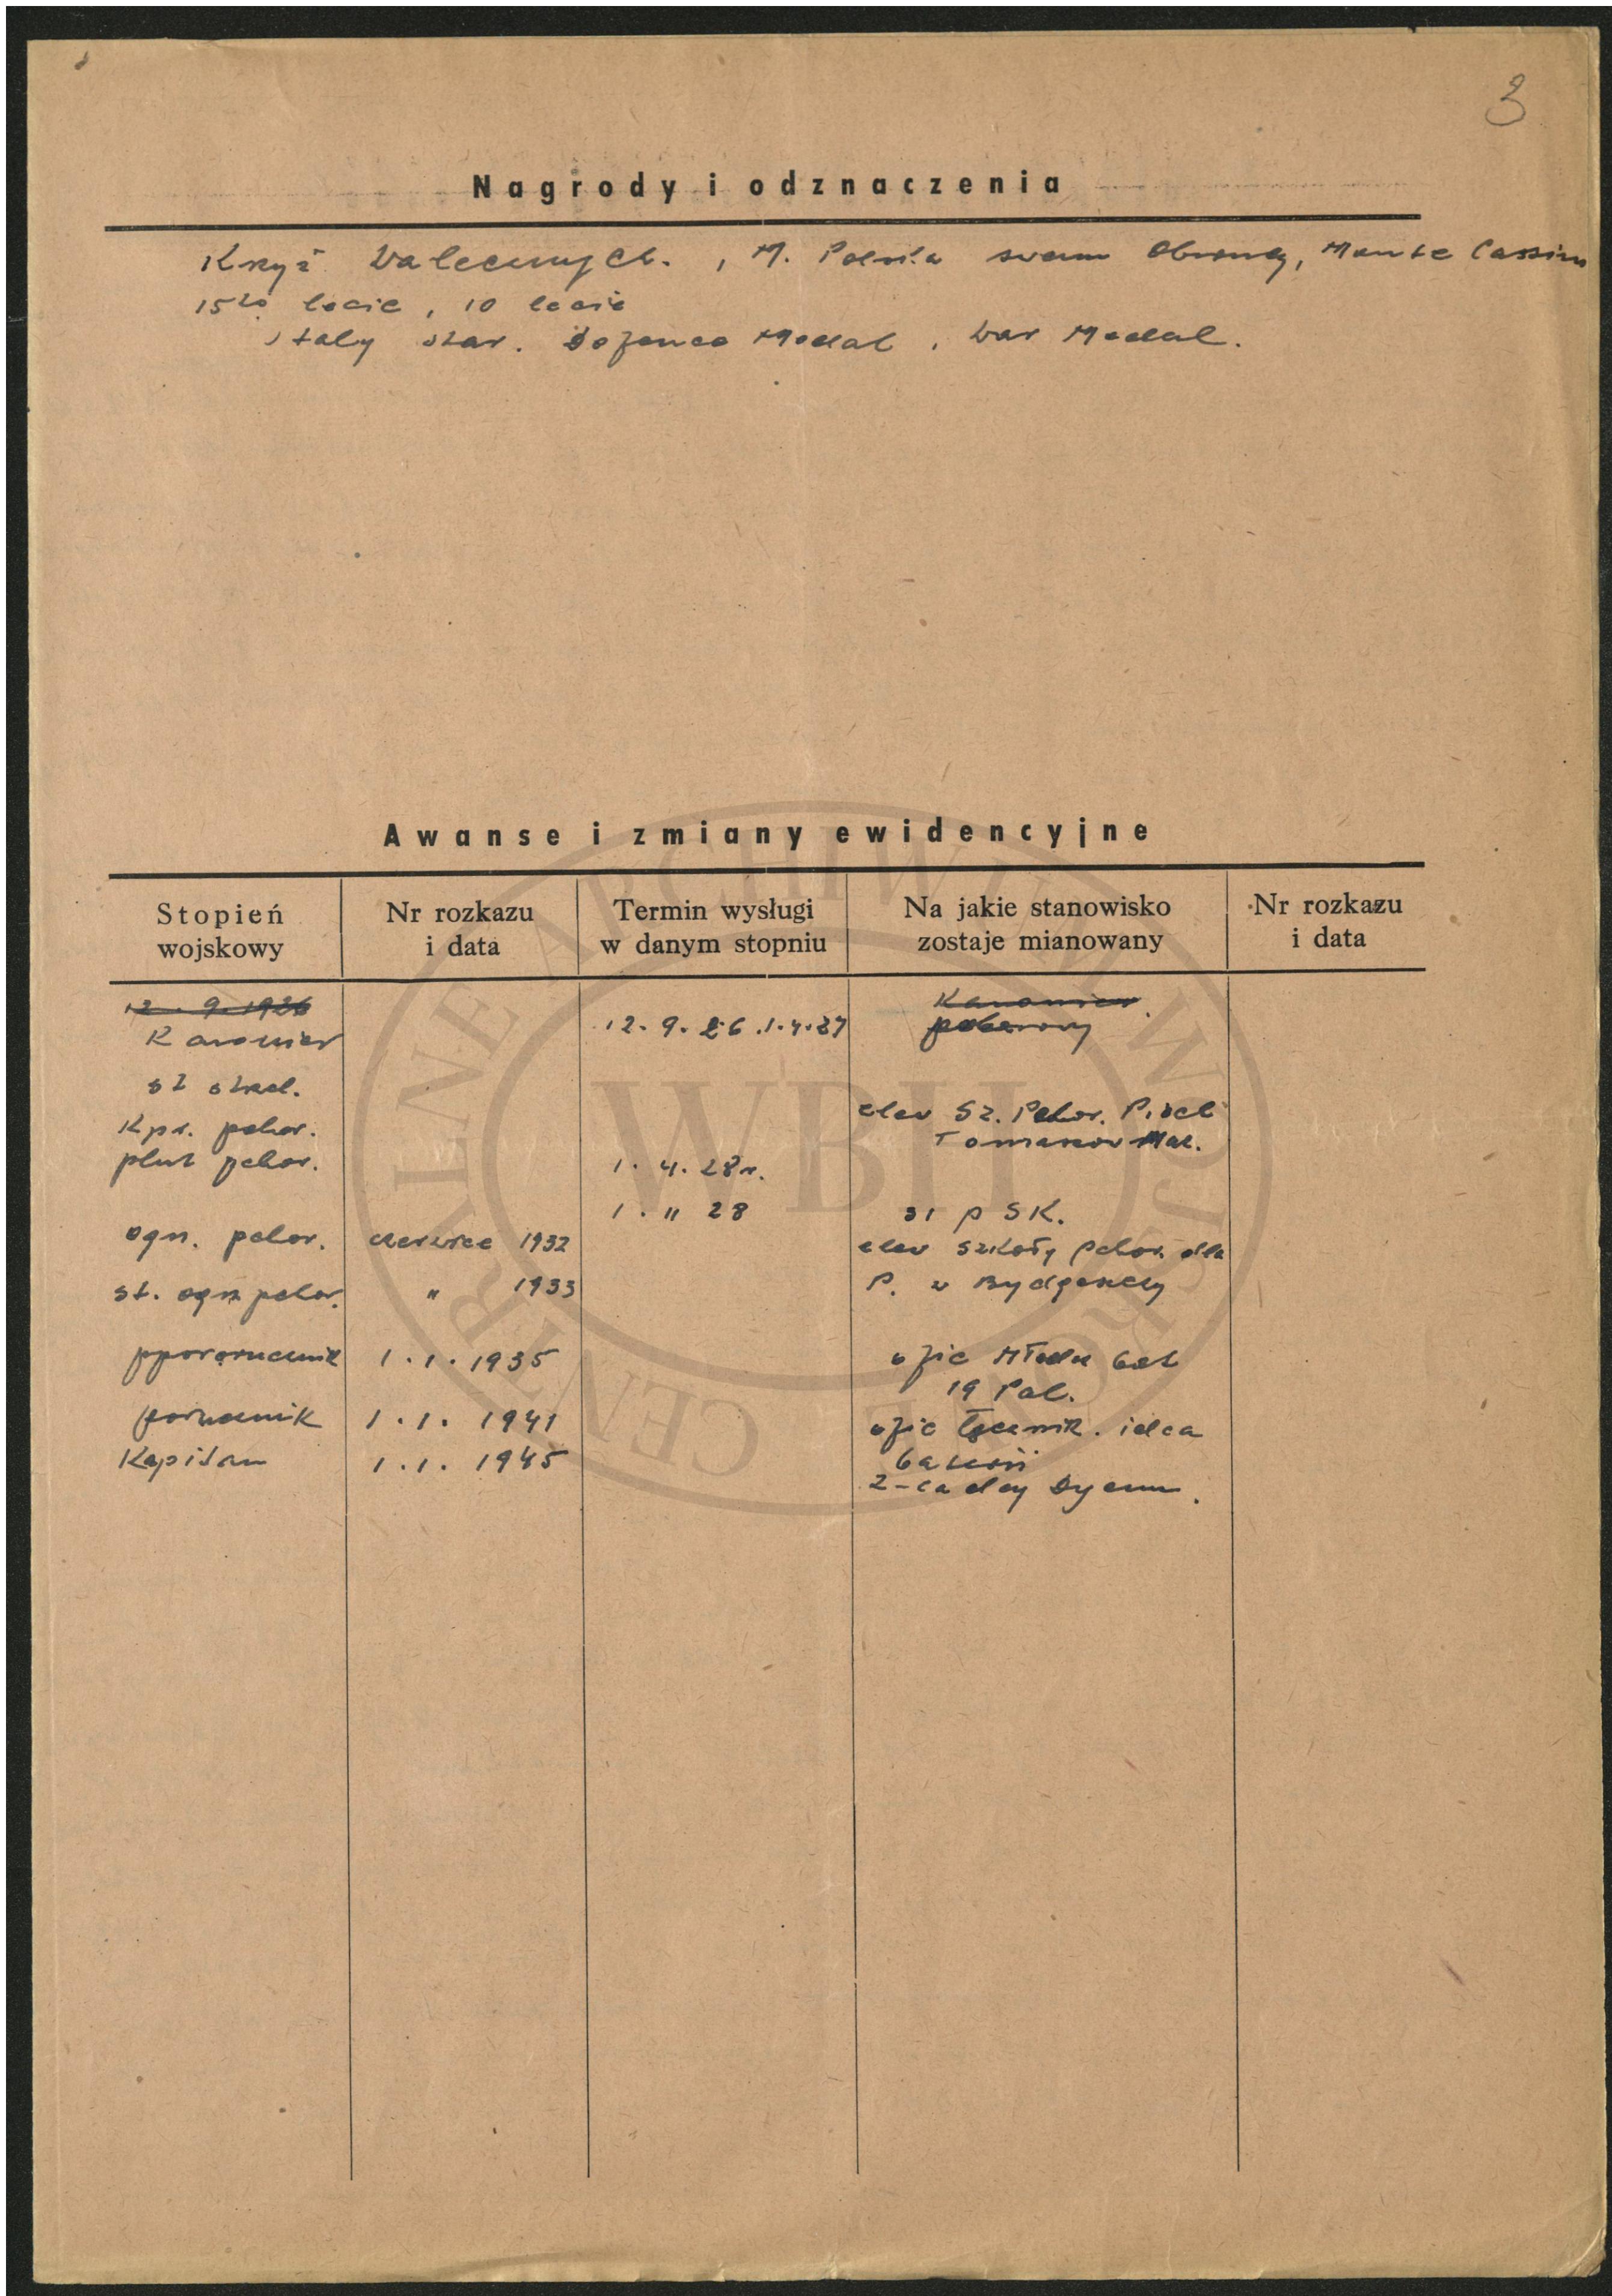 3
Nagrody i odznaczenia
Krzyż Walecznych. , M. Polska swemu Obrońcy, Monte Cassino
15to lecie, 10 lecie
Italy star. Defence Medal, War Medal.
Awanse i zmiany ewidencyjne
Stopień wojskowy
Nr rozkazu i data
Termin wysługi w danym stopniu
Na jakie stanowisko zostaje mianowany
Nr rozkazu i data
12. 9. 1926 Kanonier
Kanonier 12. 9. 26. 1.4.27 poborowy
st strzel.
Kpr. pchor. elew Sz. Pchor. Piech
Tomaszów Maz.
plut pchor. 1. 4. 28 r.
1. " 28 31 p SK.
ogn. pchor. czerwiec 1932 elew Szkoły Pchor. dla
st. ogn pchor. " 1933 P. w Bydgoszczy
pporucznik 1.1.1935 ofic Młods bat
19 Pal.
porucznik 1.1.1941 ofic Łącznik.
Kapitan 1.1.1945 baterii
z-ca dcy Dyonu.
CENTRALNE ARCHIWUM WOJSKOWE
WBH